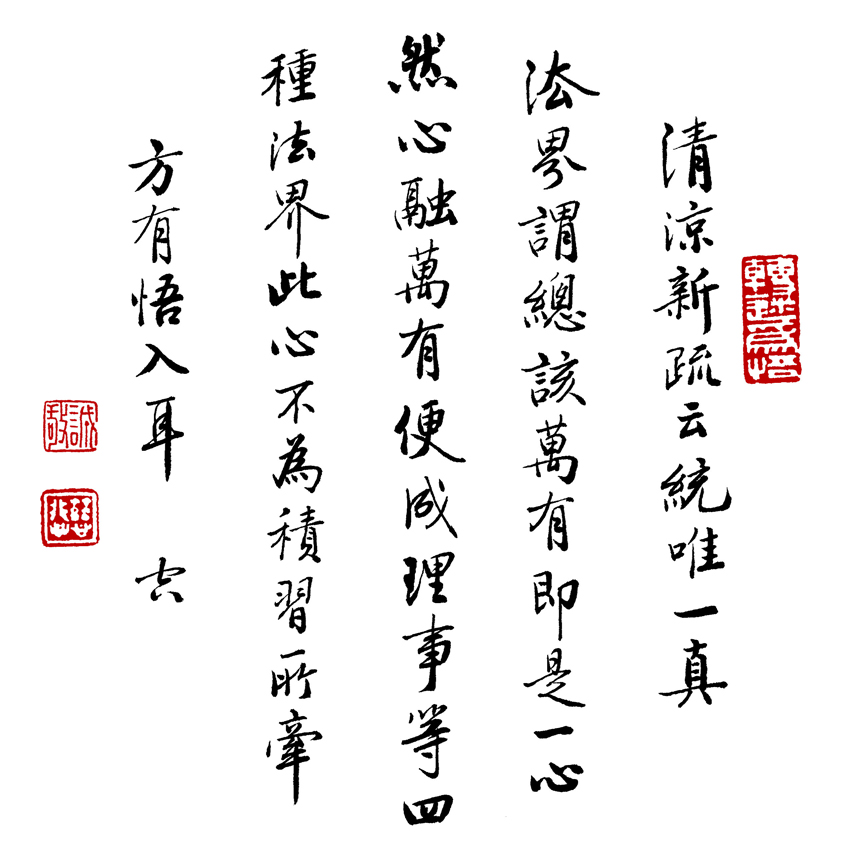 清涼新疏云統唯一真
法界謂總該萬有即是一心
然心融萬有便成理事等四
種法界此心不為積習所牽
方有悟入耳
轉迷為悟